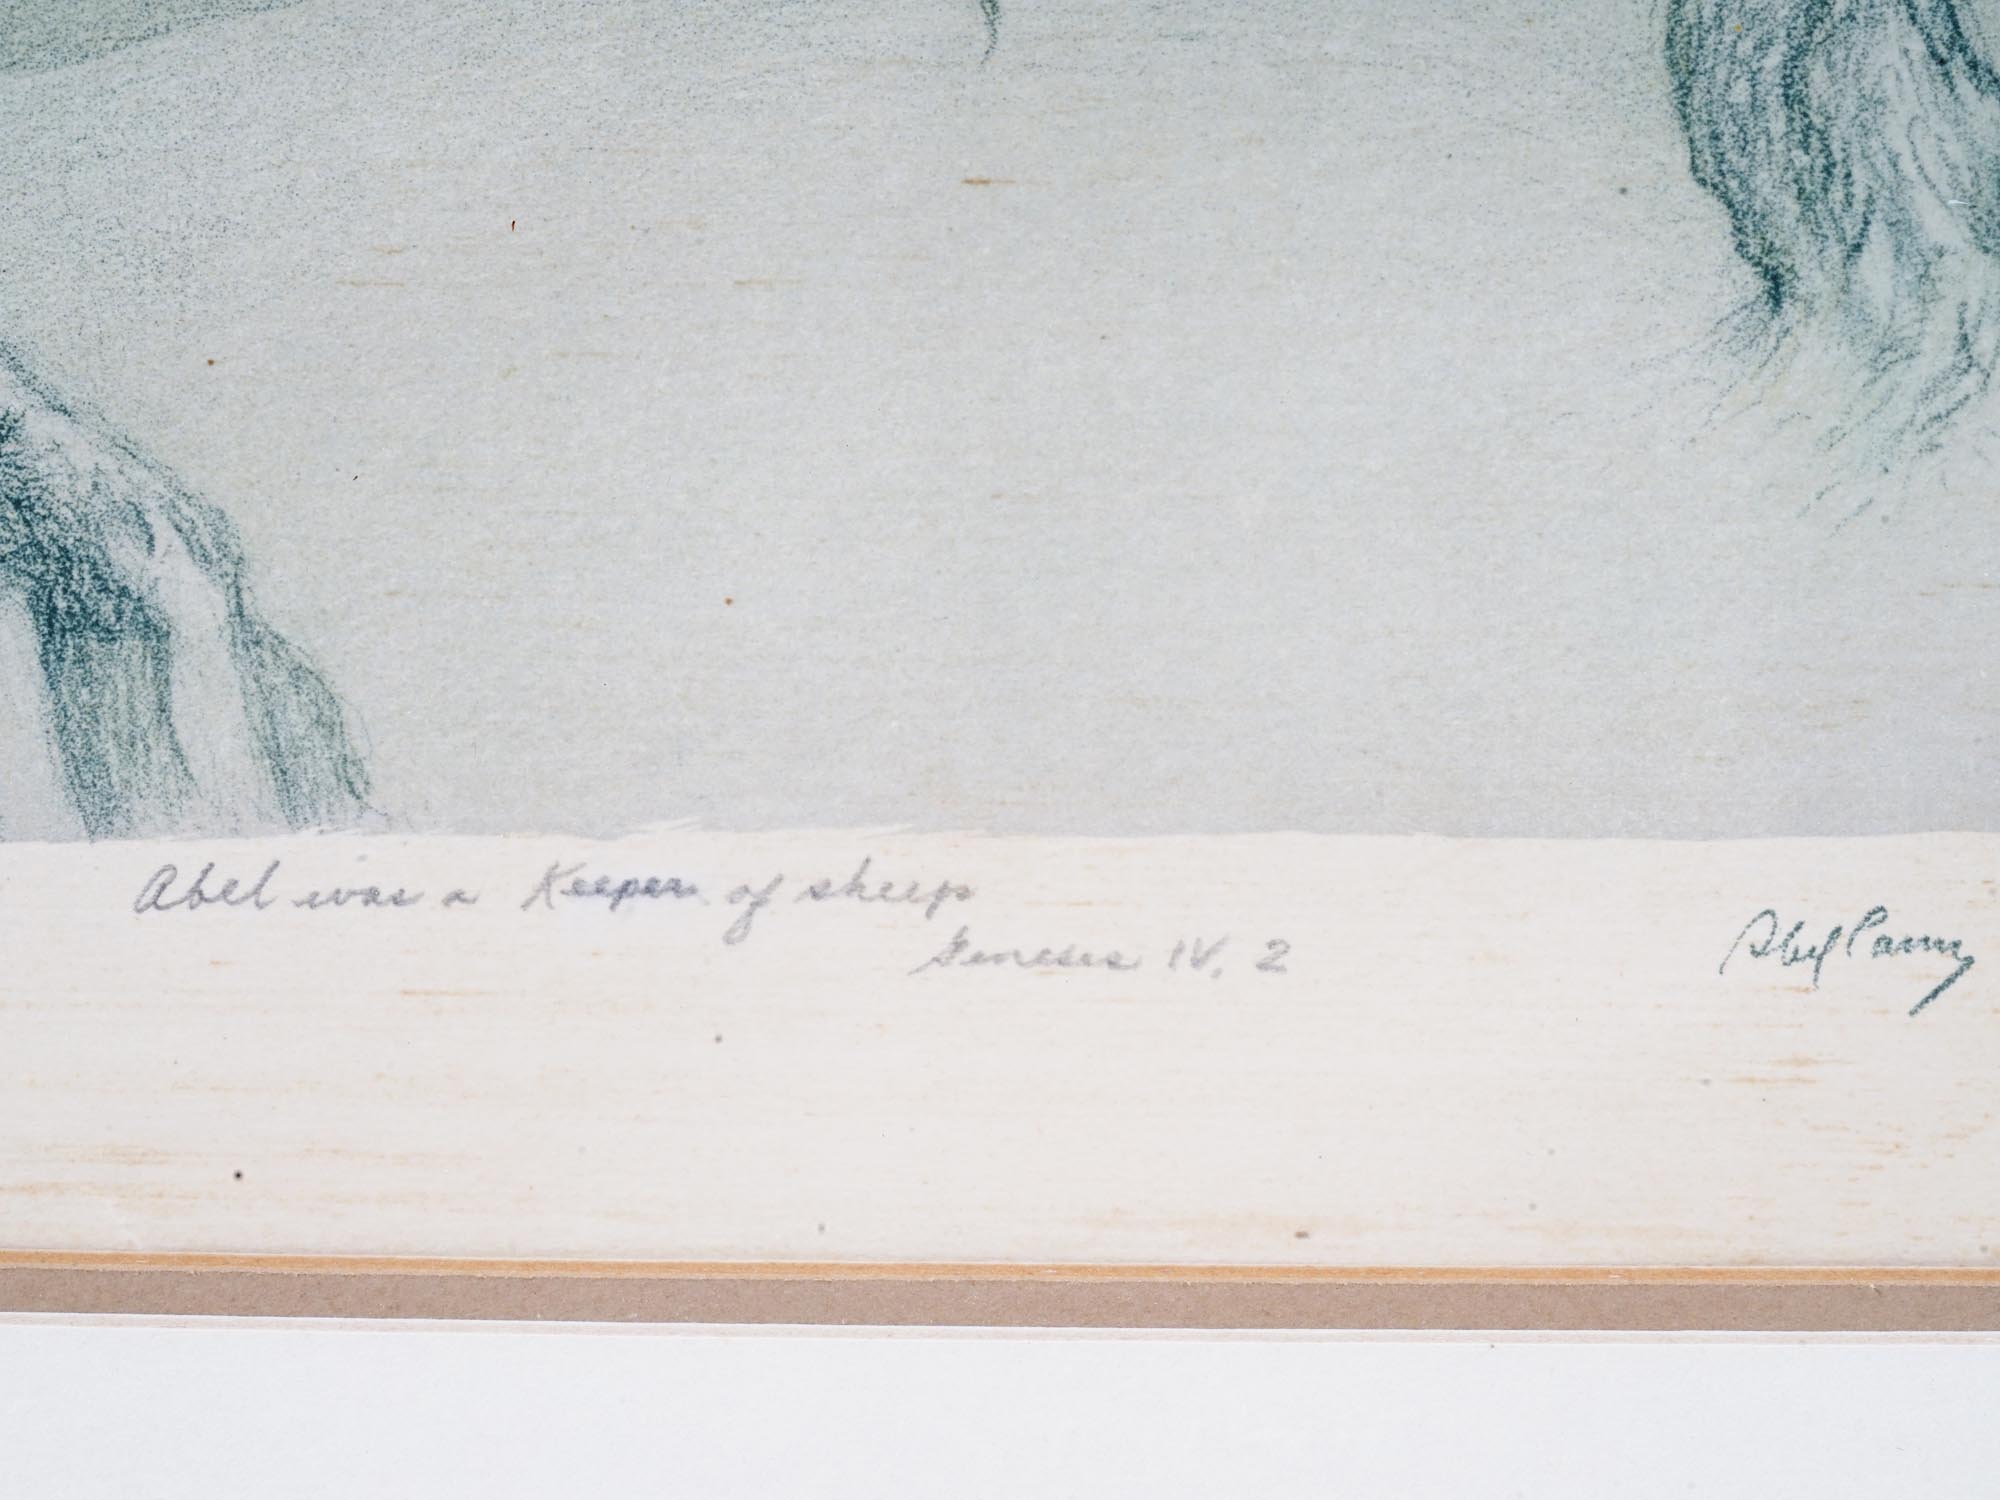 Abel was a Keeper of sheep
Genesis IV. 2
Abel Pann